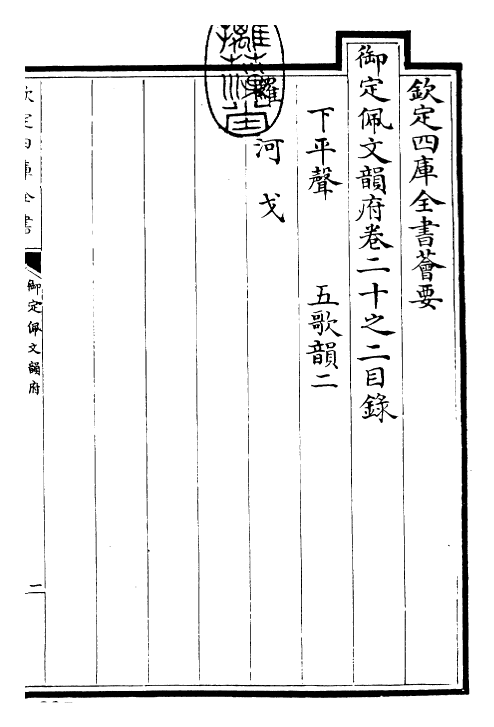 欽定四庫全書薈要
御定佩文韻府卷二十之二目錄
下平聲　五歌韻二
羅　河　戈
欽定四庫全書
御定佩文韻府
一